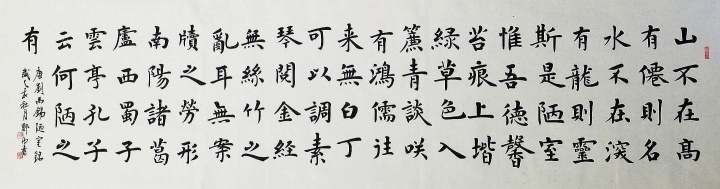 山不在髙
有僊則名
水不在深
有龍則靈
斯是陋室
惟吾德馨
苔痕上堦
綠草色入
簾青談咲
有鴻儒往
来無白丁
可以調素
琴閱金経
無絲竹之
亂耳無案
牘之勞形
南陽諸葛
盧西蜀子
雲亭孔子
云何陋之
有
唐劉禹錫陋室銘
歲己亥秋月鄭書